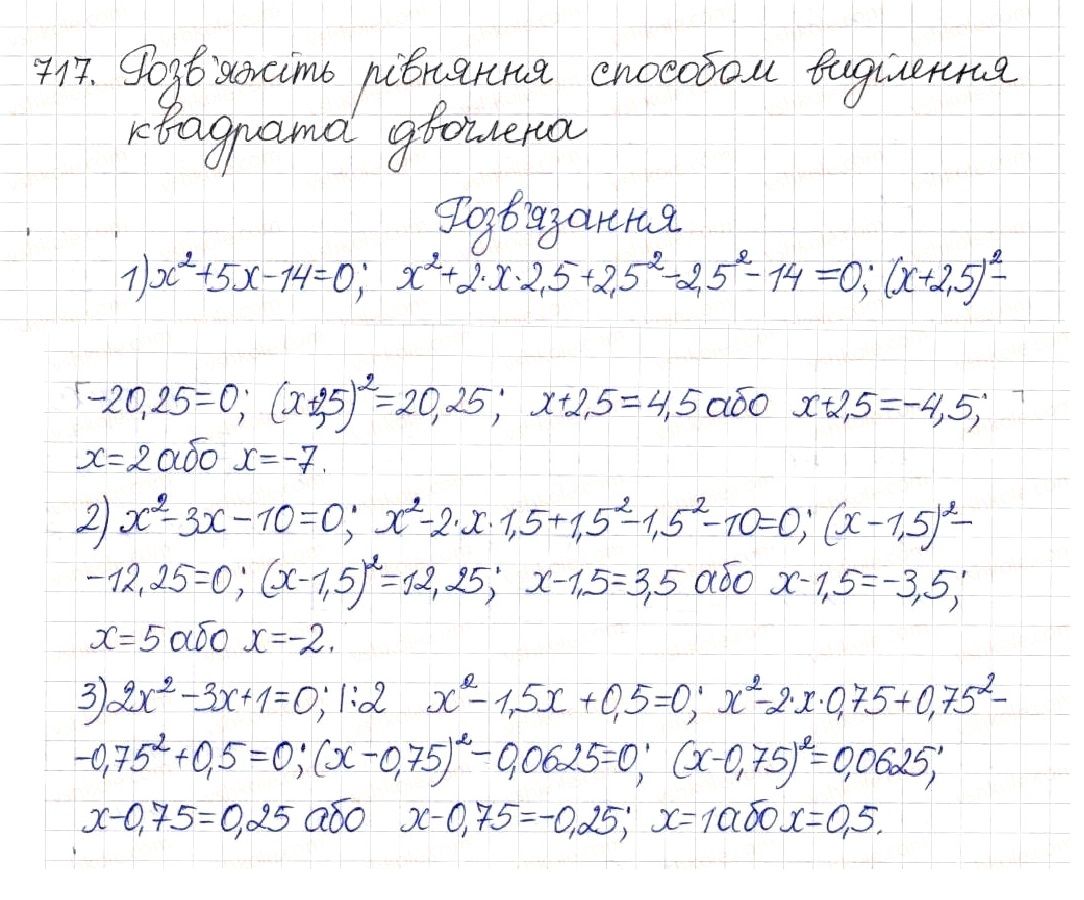 717. Розв'яжіть рівняння способом виділення
квадрата двочлена
Розв'язання
1) x²+5x-14=0; x²+2·x·2,5+2,5²-2,5²-14=0; (x+2,5)²-
-20,25=0; (x+2,5)²=20,25; x+2,5=4,5 або x+2,5=-4,5;
x=2 або x=-7.
2) x²-3x-10=0; x²-2·x·1,5+1,5²-1,5²-10=0; (x-1,5)²-
-12,25=0; (x-1,5)²=12,25; x-1,5=3,5 або x-1,5=-3,5;
x=5 або x=-2.
3) 2x²-3x+1=0; |:2 x²-1,5x+0,5=0; x²-2·x·0,75+0,75²-
-0,75²+0,5=0; (x-0,75)²-0,0625=0; (x-0,75)²=0,0625;
x-0,75=0,25 або x-0,75=-0,25; x=1 або x=0,5.